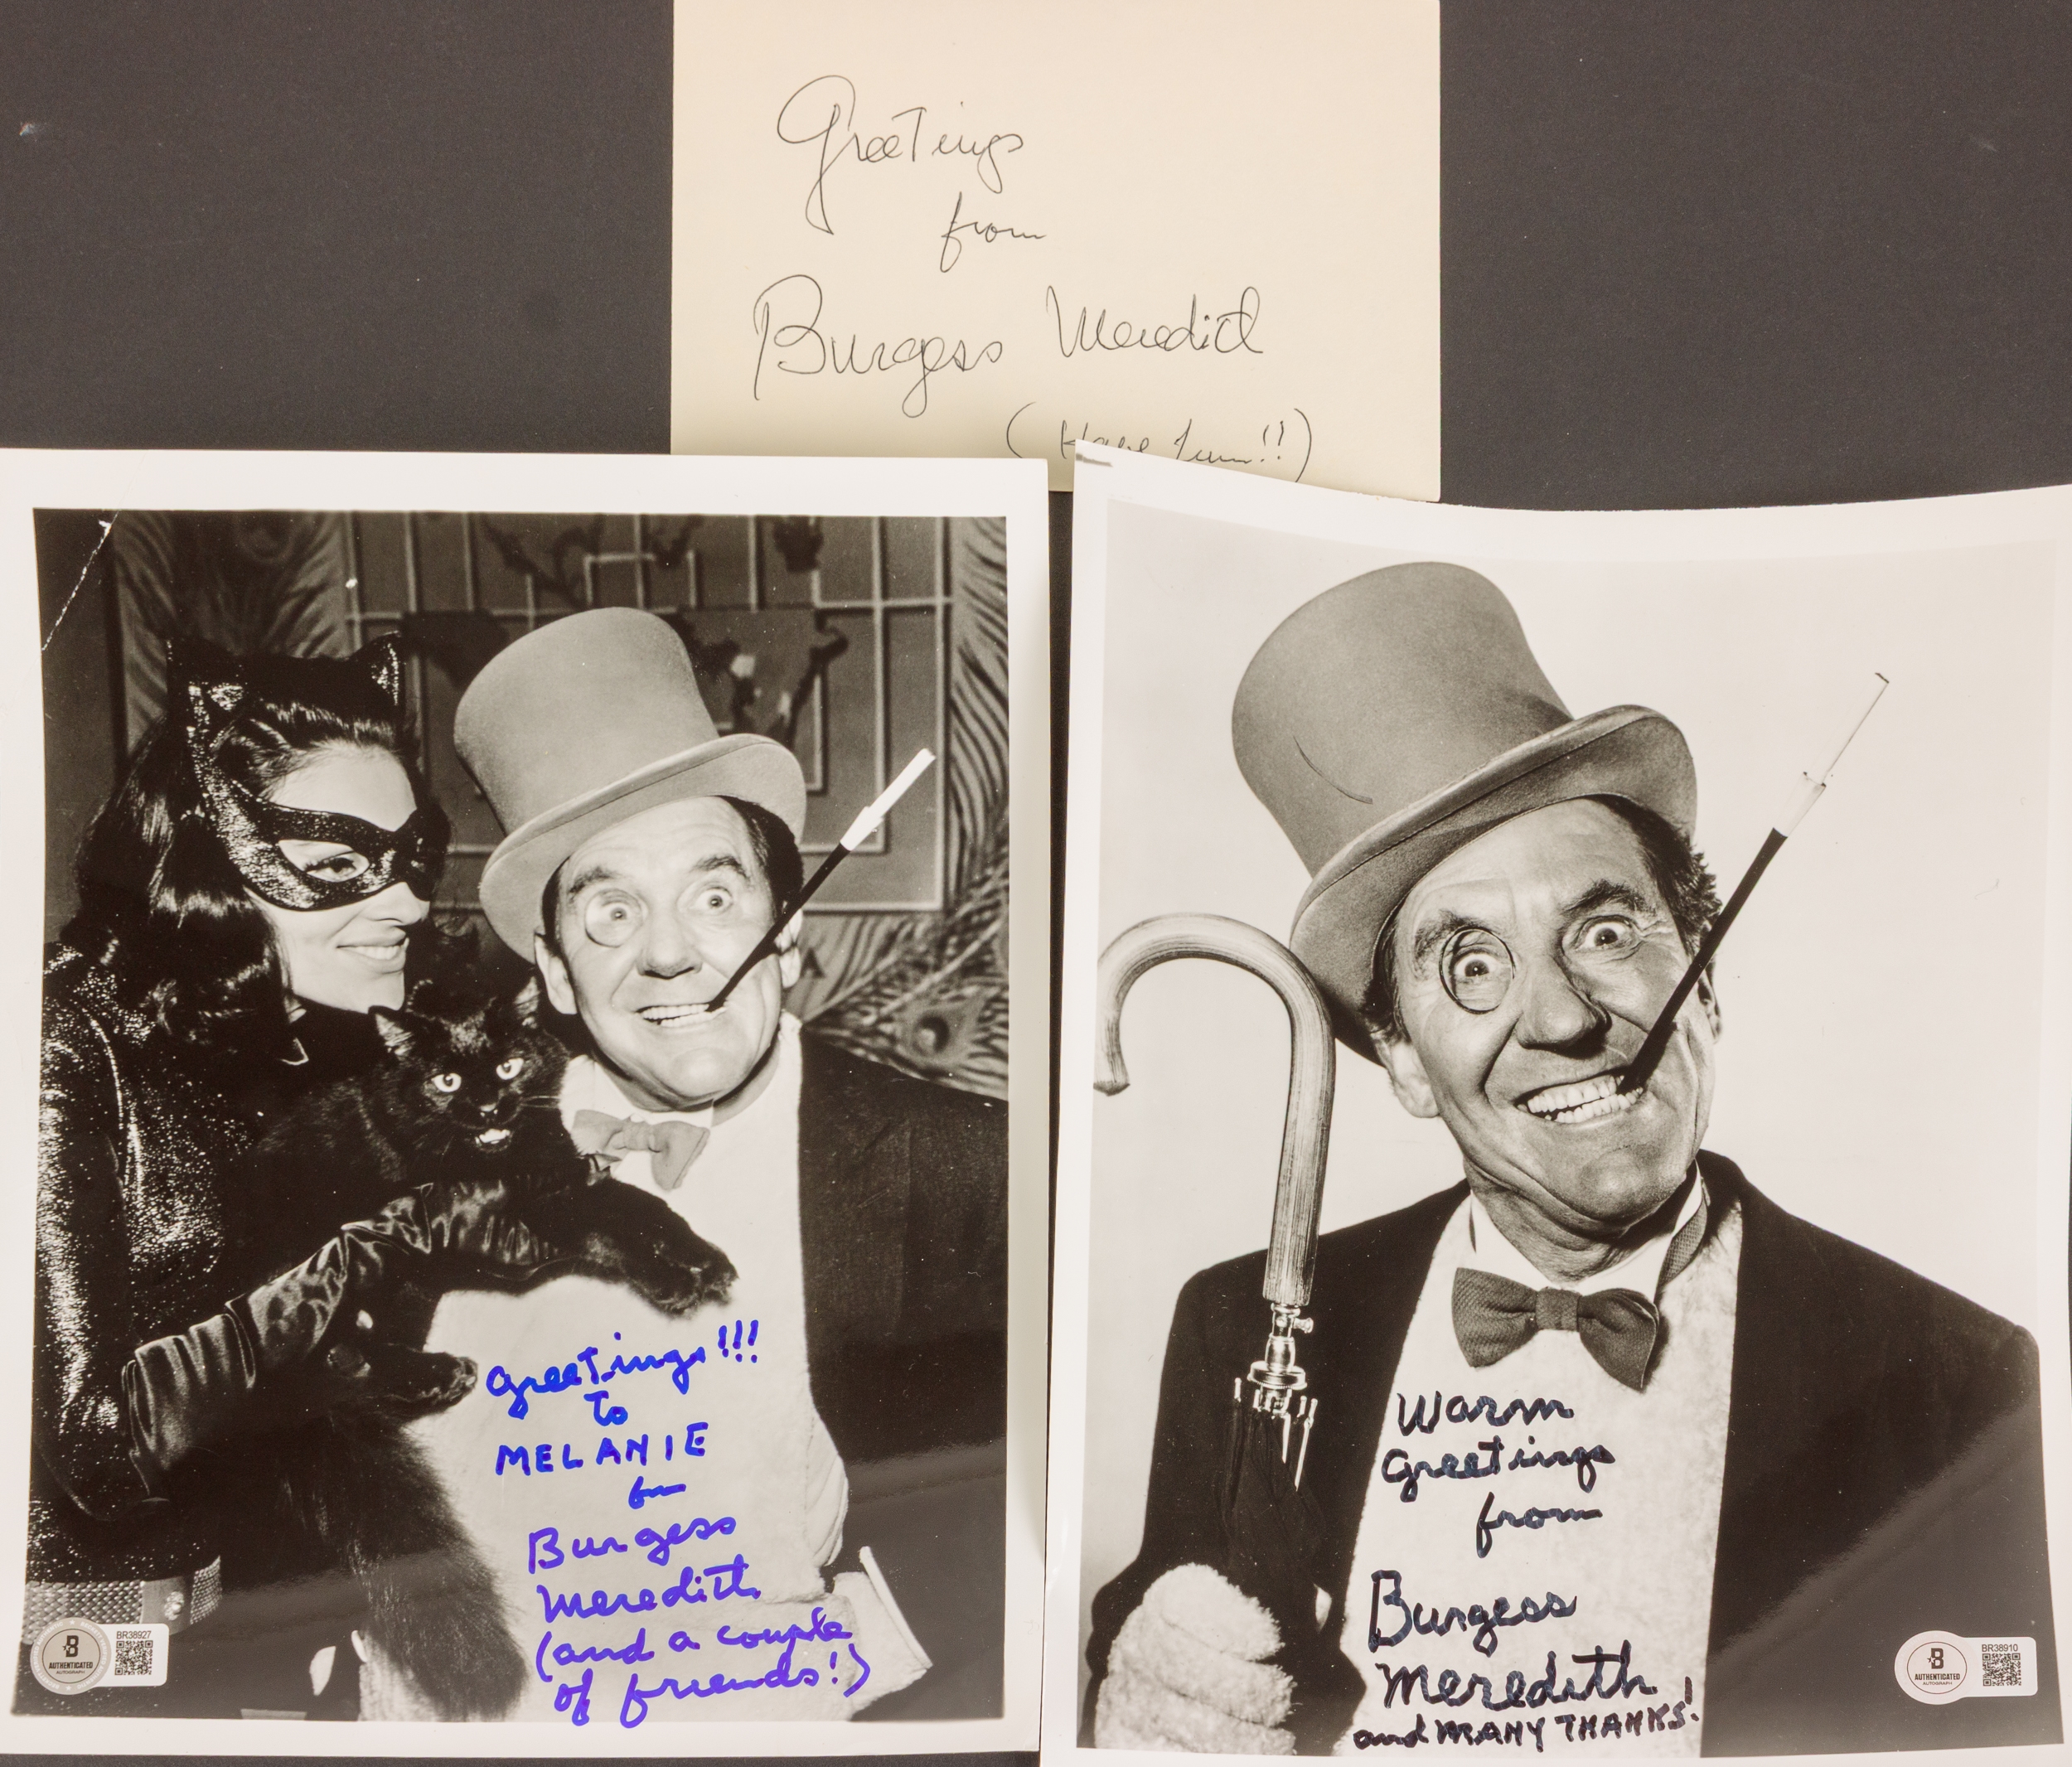 Greetings
from
Burgess Meredith
(Have fun!!)
Greetings!!!
To
MELANIE
from
Burgess
Meredith
(and a couple
of friends!)
B
AUTHENTICATED
AUTOGRAPH
BR38927
Warm
Greetings
from
Burgess
Meredith
and MANY THANKS!
B
AUTHENTICATED
AUTOGRAPH
BR38910